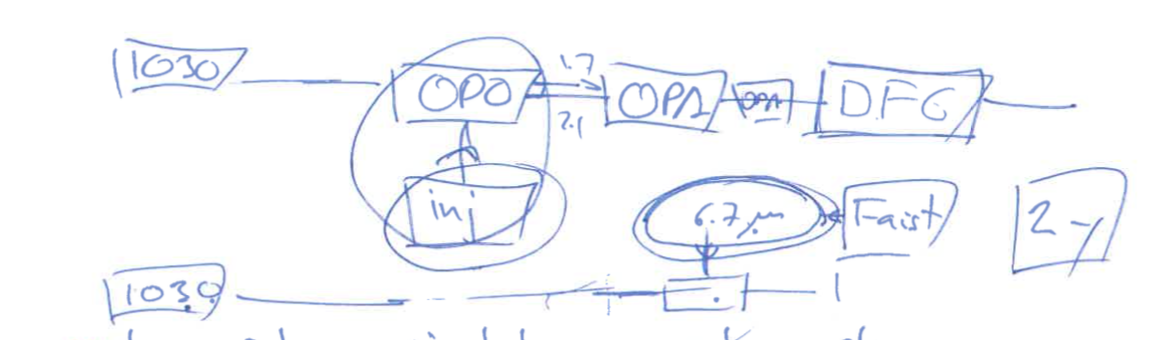 1030 OPO 1.7 OPA OPA DFG
2.1
inj 6.7 µm Faist 2-y
1030